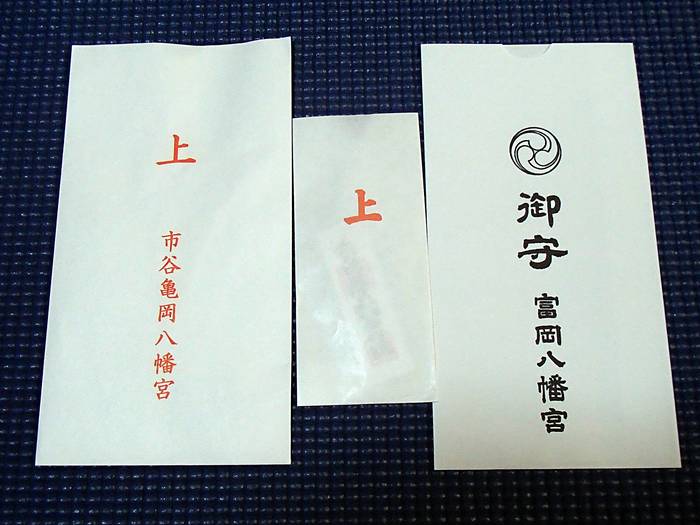 上
市谷亀岡八幡宮
上
御守
富岡八幡宮